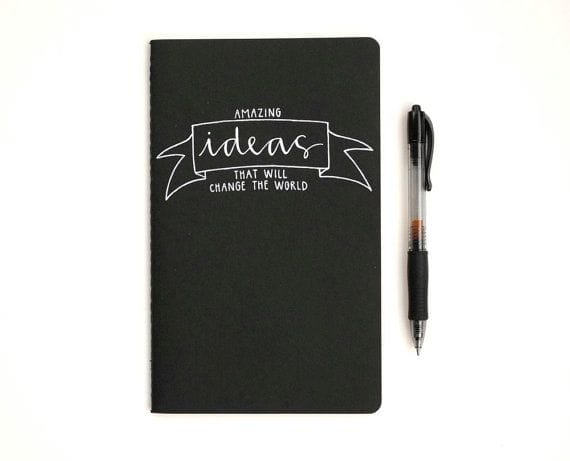 AMAZING
ideas
THAT WILL
CHANGE THE WORLD